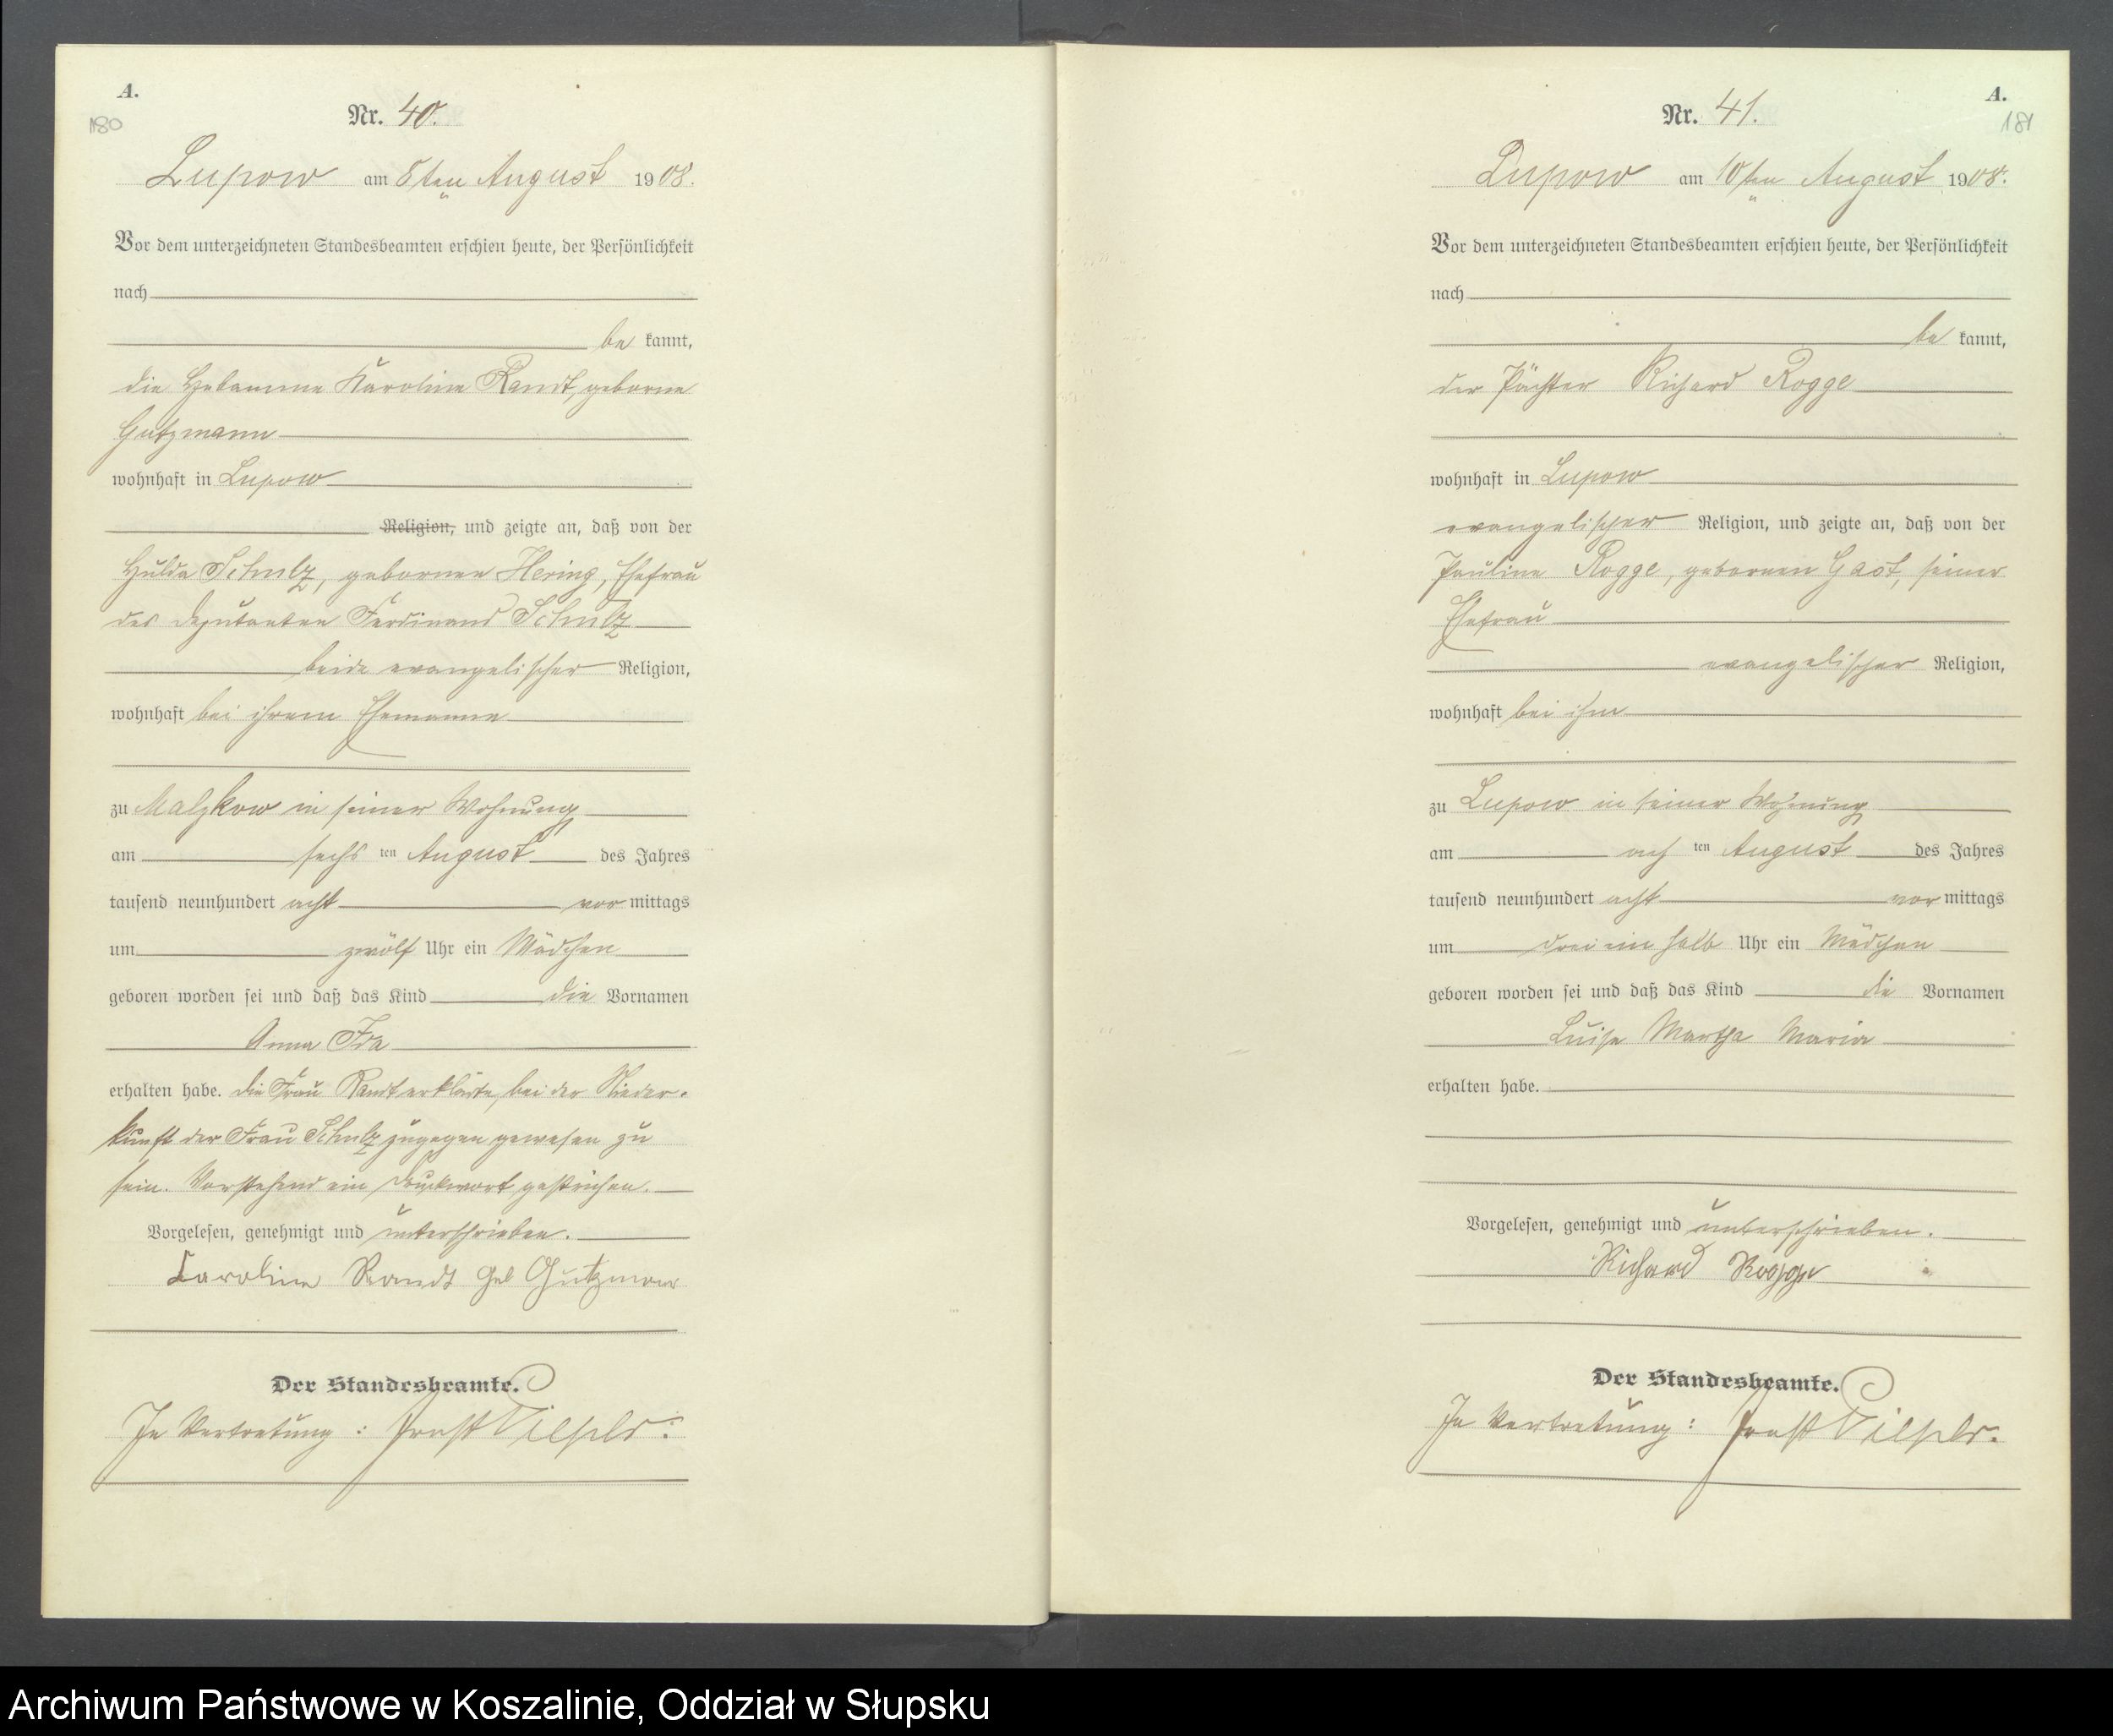 A.
180
Nr. 40.
Lupow am 8ten August 1908.
Vor dem unterzeichneten Standesbeamten erschien heute, der Persönlichkeit
nach
be kannt,
die Hebamme Karoline Randt, geborne
Gutzmann
wohnhaft in Lupow
Religion, und zeigte an, daß von der
Hulda Schulz, gebornen Hering, Ehefrau
des Deputanten Ferdinand Schulz
beide evangelischer Religion,
wohnhaft bei ihrem Ehemanne
zu Malzkow in seiner Wohnung
am sechs ten August des Jahres
tausend neunhundert acht vor mittags
um zwölf Uhr ein Mädchen
geboren worden sei und daß das Kind die Vornamen
Anna Ida
erhalten habe. Die Frau Randt erklärte, bei der Nieder-
kunft der Frau Schulz zugegen gewesen zu
sein. Vorstehend ein Druckwort gestrichen.
Vorgelesen, genehmigt und unterschrieben.
Caroline Randt geb Gutzmann
Der Standesbeamte.
In Vertretung: Ernst
A.
181
Nr. 41.
Lupow am 10ten August 1908.
Vor dem unterzeichneten Standesbeamten erschien heute, der Persönlichkeit
nach
be kannt,
der Pächter Richard Rogge
wohnhaft in Lupow
evangelischer Religion, und zeigte an, daß von der
Pauline Rogge, gebornen Gast, seiner
Ehefrau
evangelischer Religion,
wohnhaft bei ihm
zu Lupow in seiner Wohnung
am ach ten August des Jahres
tausend neunhundert acht vor mittags
um drei ein halb Uhr ein Mädchen
geboren worden sei und daß das Kind die Vornamen
Luise Martha Maria
erhalten habe.
Vorgelesen, genehmigt und unterschrieben.
Richard Rogge
Der Standesbeamte.
In Vertretung: Ernst
Archiwum Państwowe w Koszalinie, Oddział w Słupsku